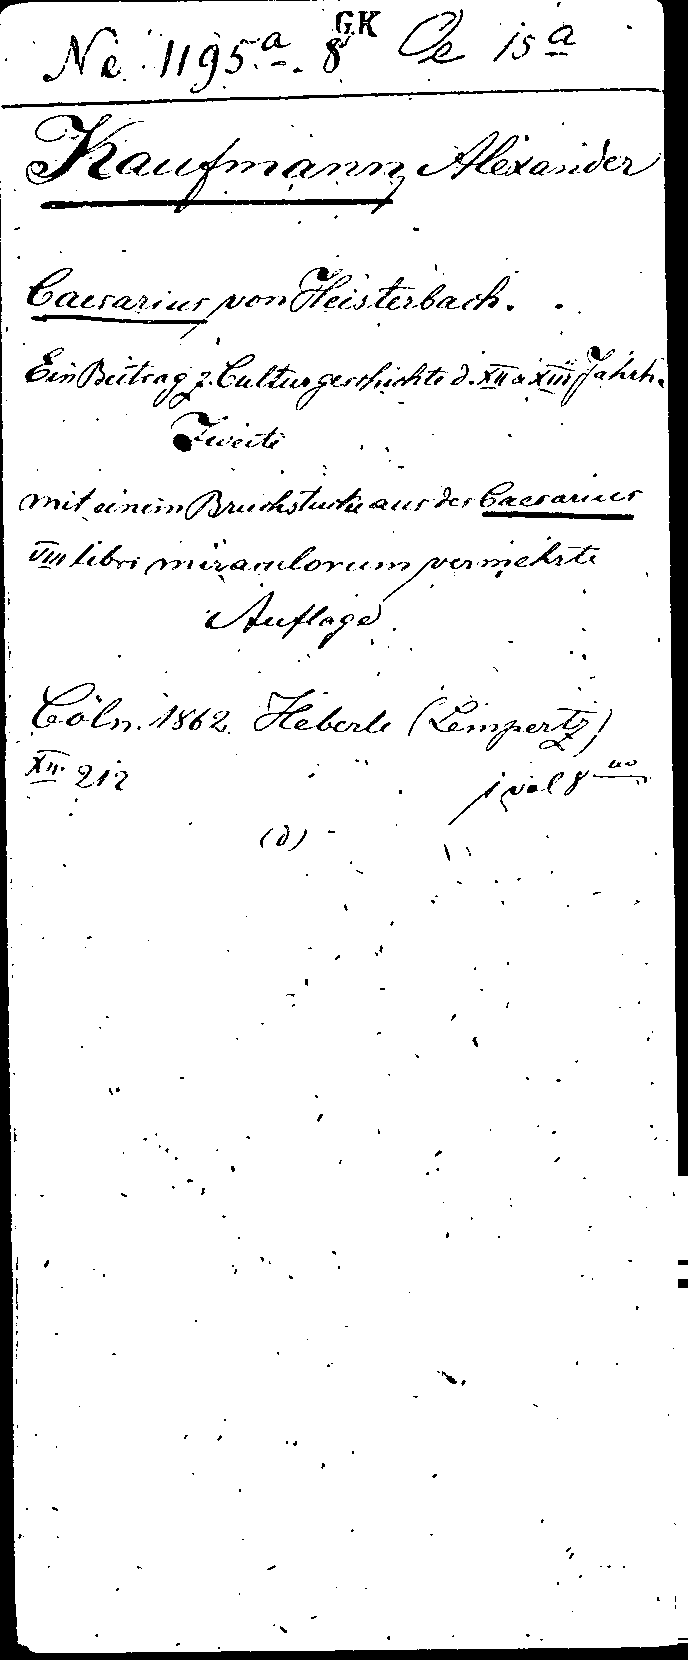 GK
Ne 1195.a. 8 Oe 15 a
Kaufmann, Alexander
Caesarius von Heisterbach.
Ein Beitrag z. Culturgeschichte d. XII u XIII Jahrh.
Zweite
mit einem Bruchstücke aus des Caesarius
VIII libri miraculorum vermehrte
Auflage
Cöln. 1862. Heberle (Lempertz)
XII. 212 1 vol 8 vo
(d)